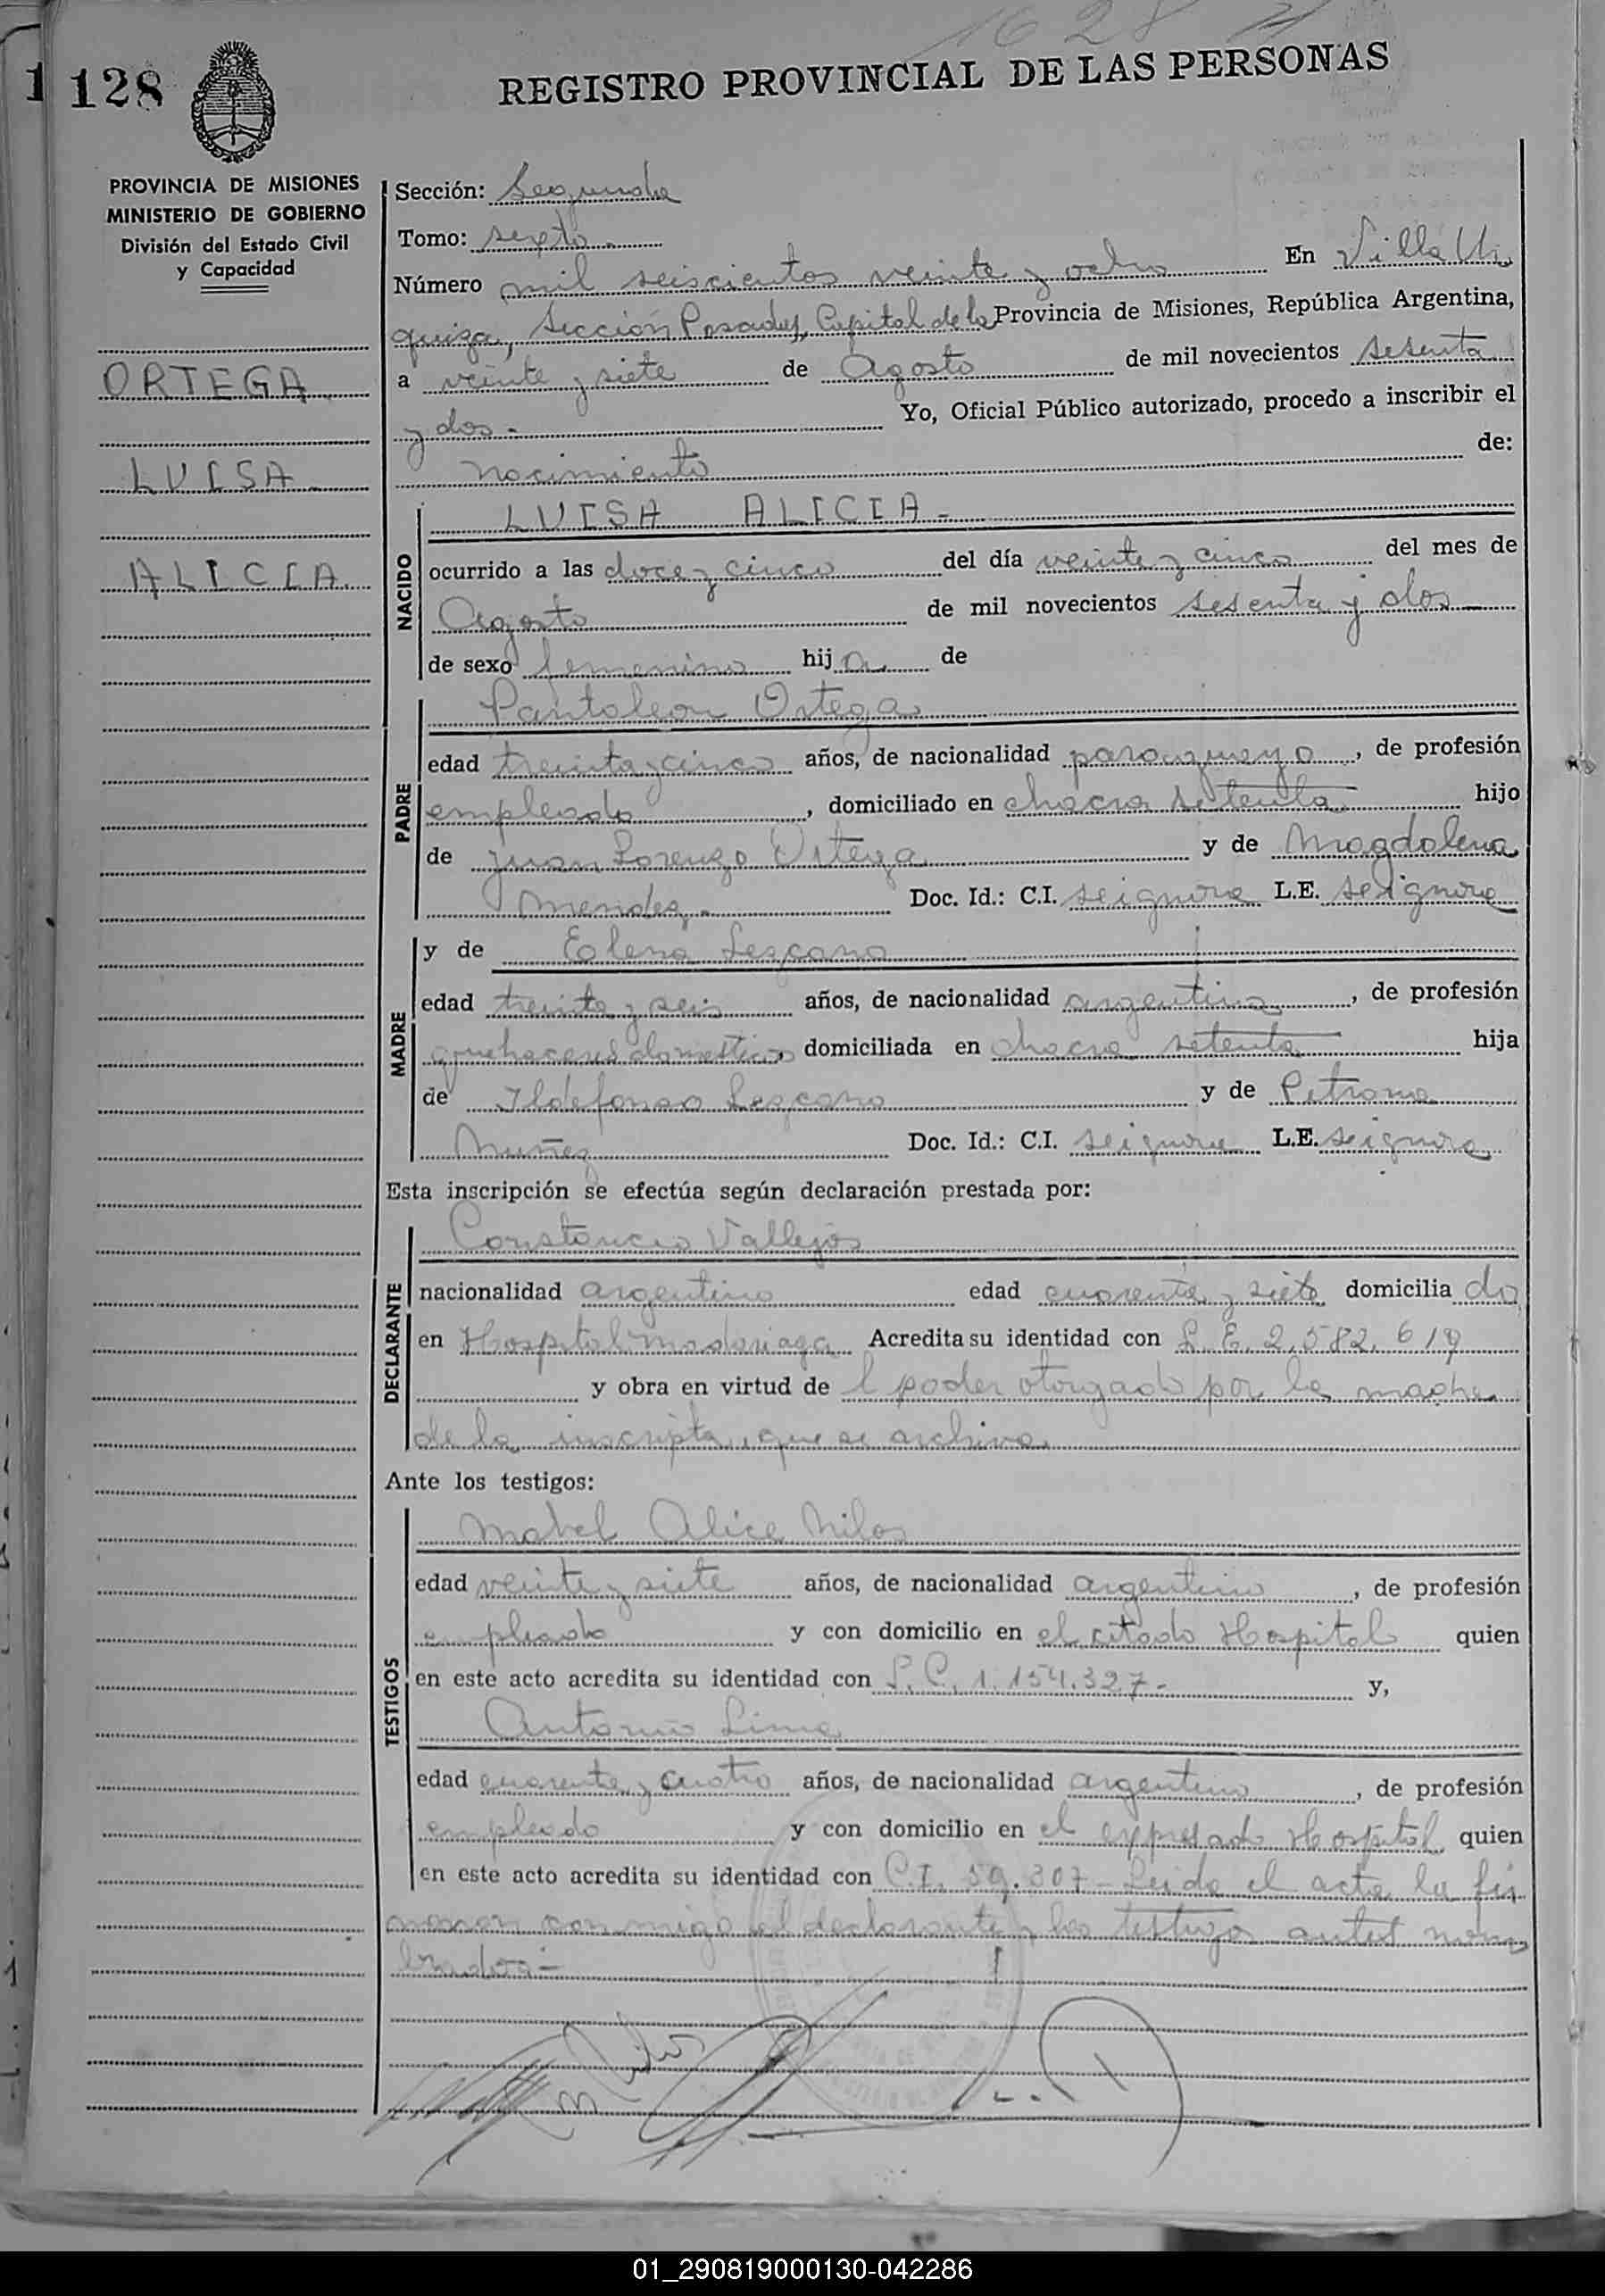 1628
1 128
REGISTRO PROVINCIAL DE LAS PERSONAS
PROVINCIA DE MISIONES
MINISTERIO DE GOBIERNO
División del Estado Civil
y Capacidad
ORTEGA
LUISA
ALICIA
Sección: Segunda
Tomo: sexto.
Número mil seiscientos veinte y ocho En Villa Ur
quiza, Sección Posadas, Capital de la Provincia de Misiones, República Argentina,
a veinte y siete de Agosto de mil novecientos sesenta
y dos.- Yo, Oficial Público autorizado, procedo a inscribir el
nacimiento de:
NACIDO
LUISA ALICIA-
ocurrido a las doce y cinco del día veinte y cinco del mes de
Agosto de mil novecientos sesenta y dos
de sexo femenino hija de
PADRE
Pantaleon Ortega
edad treinta y cinco años, de nacionalidad paraguayo, de profesión
empleado, domiciliado en chacra setenta hijo
de Juan Lorenzo Ortega y de Magdalena
Mendez.- Doc. Id.: C.I. se ignora L.E. se ignora
MADRE
y de Elena Lezcano
edad treinta y seis años, de nacionalidad argentina, de profesión
quehaceres domesticos domiciliada en chacra setenta hija
de Ildefonso Lezcano y de Petrona
Muñez Doc. Id.: C.I. se ignora L.E. se ignora
Esta inscripción se efectúa según declaración prestada por:
DECLARANTE
Constancio Vallejos
nacionalidad argentino edad cuarenta y siete domiciliado
en Hospital Madariaga Acredita su identidad con L.E. 2.582.619
y obra en virtud del poder otorgado por la madre
de la inscripta, que se archiva
Ante los testigos:
TESTIGOS
Mabel Alice Milos
edad veinte y siete años, de nacionalidad argentino, de profesión
empleado y con domicilio en el citado Hospital quien
en este acto acredita su identidad con L.C. 1.154.327- y,
Antonio Lima
edad cuarenta y cuatro años, de nacionalidad argentino, de profesión
empleado y con domicilio en el expresado Hospital quien
en este acto acredita su identidad con C.I. 59.307- Leida el acta la fir
maron conmigo el declarante y los testigos antes nom
brados.-
01_290819000130-042286